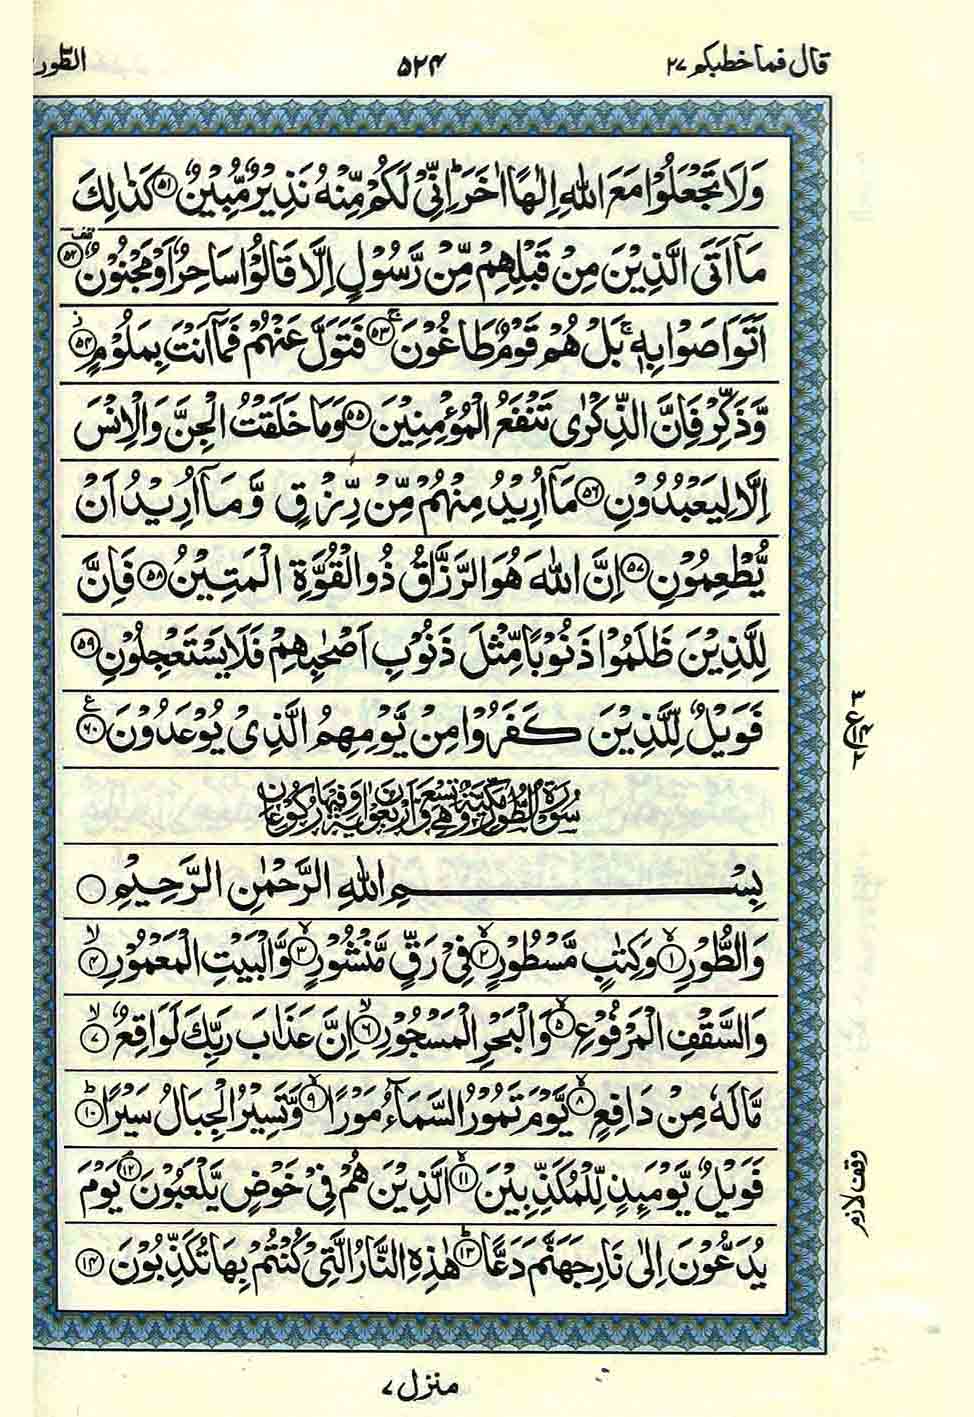 قال فما خطبکم ۲۷
۵۲۴
الطور
وَلَا تَجْعَلُوْا مَعَ اللّٰهِ اِلٰهًا اٰخَرَ ؕ اِنِّیْ لَكُمْ مِّنْهُ نَذِیْرٌ مُّبِیْنٌ ۚ﴿۵۱﴾ كَذٰلِكَ
مَاۤ اَتَی الَّذِیْنَ مِنْ قَبْلِهِمْ مِّنْ رَّسُوْلٍ اِلَّا قَالُوْا سَاحِرٌ اَوْ مَجْنُوْنٌ ﴿۵۲﴾
اَتَوَاصَوْا بِهٖ ۚ بَلْ هُمْ قَوْمٌ طَاغُوْنَ ۚ﴿۵۳﴾ فَتَوَلَّ عَنْهُمْ فَمَاۤ اَنْتَ بِمَلُوْمٍ ﴿۵۴﴾
وَّذَكِّرْ فَاِنَّ الذِّكْرٰی تَنْفَعُ الْمُؤْمِنِیْنَ ﴿۵۵﴾ وَمَا خَلَقْتُ الْجِنَّ وَالْاِنْسَ
اِلَّا لِیَعْبُدُوْنِ ﴿۵۶﴾ مَاۤ اُرِیْدُ مِنْهُمْ مِّنْ رِّزْقٍ وَّمَاۤ اُرِیْدُ اَنْ
یُّطْعِمُوْنِ ﴿۵۷﴾ اِنَّ اللّٰهَ هُوَ الرَّزَّاقُ ذُو الْقُوَّةِ الْمَتِیْنُ ﴿۵۸﴾ فَاِنَّ
لِلَّذِیْنَ ظَلَمُوْا ذَنُوْبًا مِّثْلَ ذَنُوْبِ اَصْحٰبِهِمْ فَلَا یَسْتَعْجِلُوْنِ ﴿۵۹﴾
فَوَیْلٌ لِّلَّذِیْنَ كَفَرُوْا مِنْ یَّوْمِهِمُ الَّذِیْ یُوْعَدُوْنَ ﴿۶۰﴾
سُوْرَةُ الطُّوْرِ مَكِّیَّةٌ وَّهِیَ تِسْعٌ وَّاَرْبَعُوْنَ اٰیَةً وَّفِیْهَا رُكُوْعَانِ
بِسْمِ اللّٰهِ الرَّحْمٰنِ الرَّحِیْمِ
وَالطُّوْرِ ۙ﴿۱﴾ وَكِتٰبٍ مَّسْطُوْرٍ ۙ﴿۲﴾ فِیْ رَقٍّ مَّنْشُوْرٍ ۙ﴿۳﴾ وَّالْبَیْتِ الْمَعْمُوْرِ ۙ﴿۴﴾
وَالسَّقْفِ الْمَرْفُوْعِ ۙ﴿۵﴾ وَالْبَحْرِ الْمَسْجُوْرِ ۙ﴿۶﴾ اِنَّ عَذَابَ رَبِّكَ لَوَاقِعٌ ۙ﴿۷﴾
مَّا لَهٗ مِنْ دَافِعٍ ۙ﴿۸﴾ یَّوْمَ تَمُوْرُ السَّمَآءُ مَوْرًا ۙ﴿۹﴾ وَّتَسِیْرُ الْجِبَالُ سَیْرًا ؕ﴿۱۰﴾
فَوَیْلٌ یَّوْمَئِذٍ لِّلْمُكَذِّبِیْنَ ۙ﴿۱۱﴾ الَّذِیْنَ هُمْ فِیْ خَوْضٍ یَّلْعَبُوْنَ ۘ﴿۱۲﴾ یَوْمَ
یُدَعُّوْنَ اِلٰی نَارِ جَهَنَّمَ دَعًّا ؕ﴿۱۳﴾ هٰذِهِ النَّارُ الَّتِیْ كُنْتُمْ بِهَا تُكَذِّبُوْنَ ﴿۱۴﴾
۳
ع
۲
وقف لازم
منزل ۷